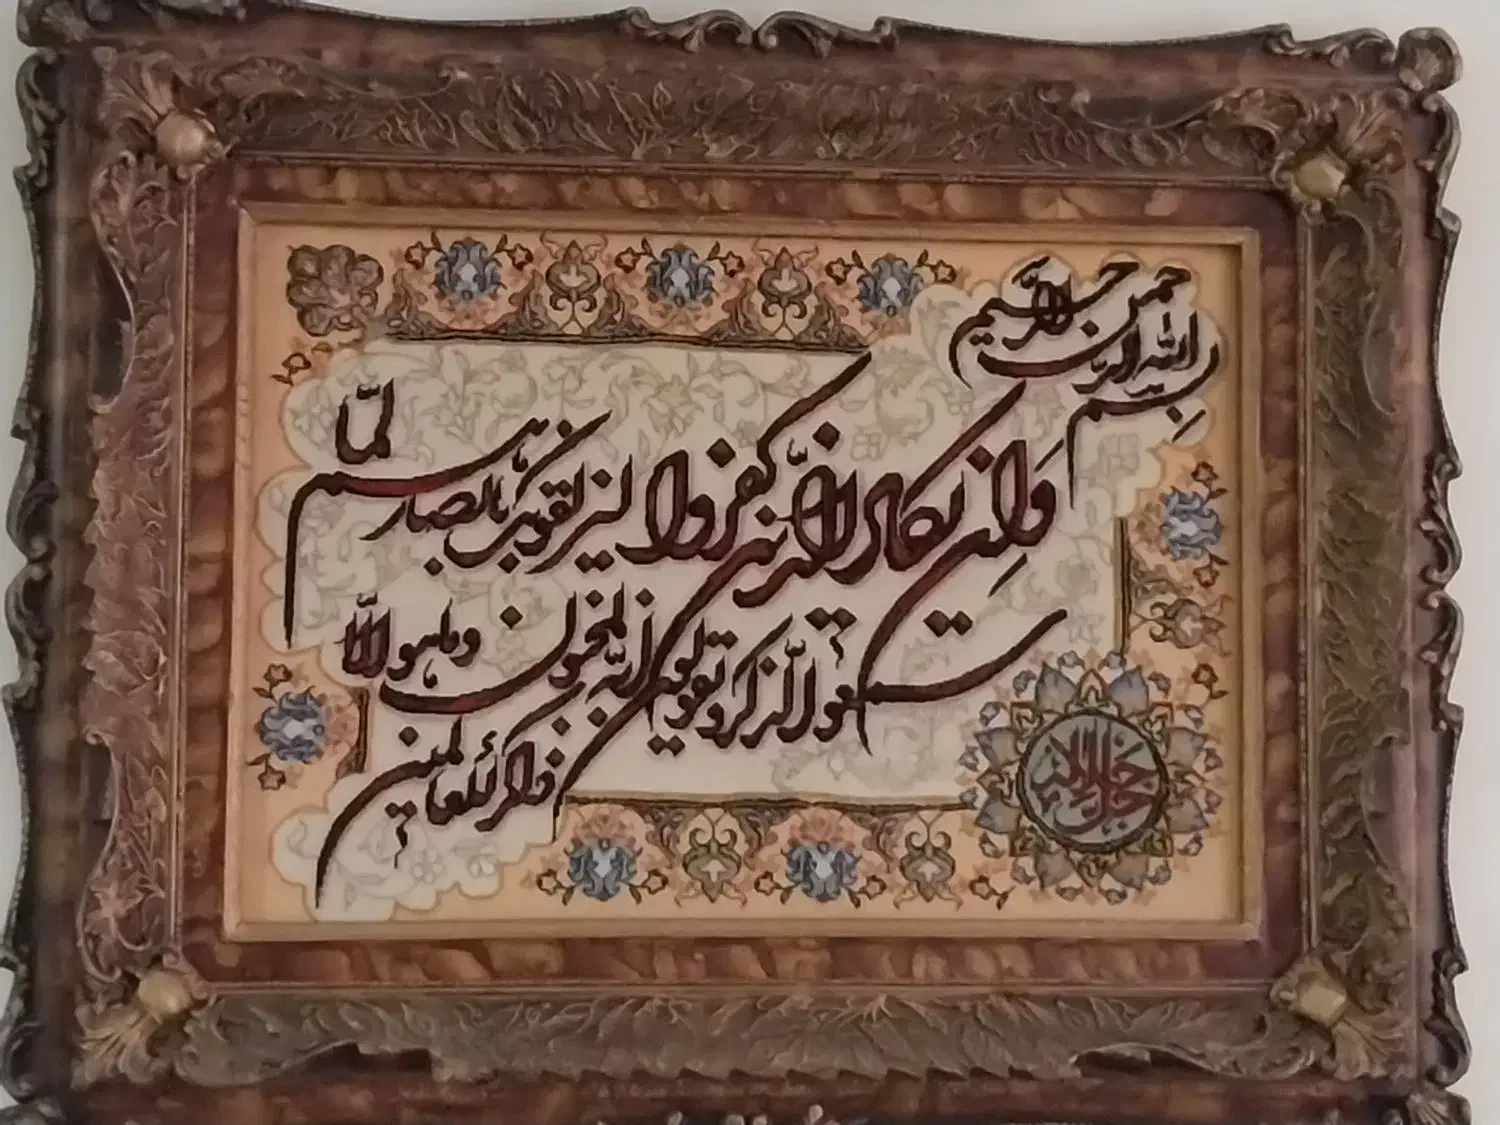 بسم الله الرحمن الرحیم
وَاِن یکاد الذین کفروا لیزلقونک بابصارهم لمّا
سمعوا الذکر و یقولون انه لمجنون و ما هو الّا
ذکر للعالمین
جل جلاله